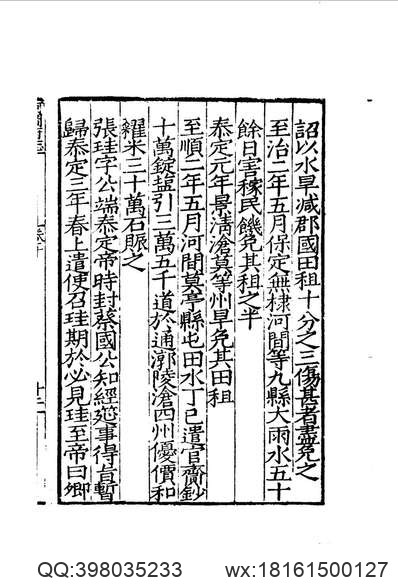 詔以水旱减郡國田租十分之三傷甚者盡免之
至治二年五月保定無棣河間等九縣大雨水五十
餘日害稼民饑免其租之半
泰定元年景清滄莫等州旱免其田租
至順二年五月河間莫亭縣屯田水丁巳遣官齎鈔
十萬錠塩引三萬五千道於通漷陵滄四州優價和
糴米三十萬石賑之
張珪字公端泰定帝時封蔡國公知經筵事得旨暫
歸泰定三年春上遣使召珪期於必見珪至帝曰卿
QQ:398035233
wx:18161500127